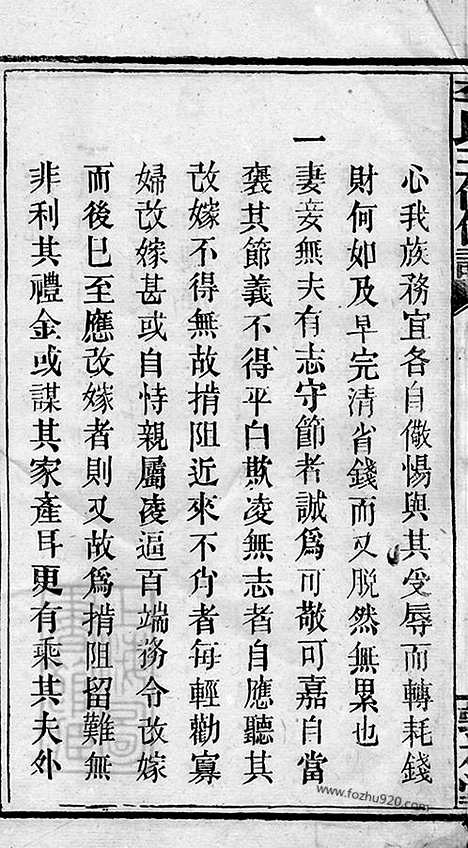 心我族務宜各自儆惕與其受辱而轉耗錢
財何如及早完清省錢而又脫然無累也
一妻妾無夫有志守節者誠爲可敬可嘉自當
褒其節義不得平白欺凌無志者自應聽其
改嫁不得無故掯阻近來不肖者每輕勸寡
婦改嫁甚或自恃親屬凌逼百端務令改嫁
而後已至應改嫁者則又故爲掯阻留難無
非利其禮金或謀其家產耳更有乘其夫外
www.fozhu920.com